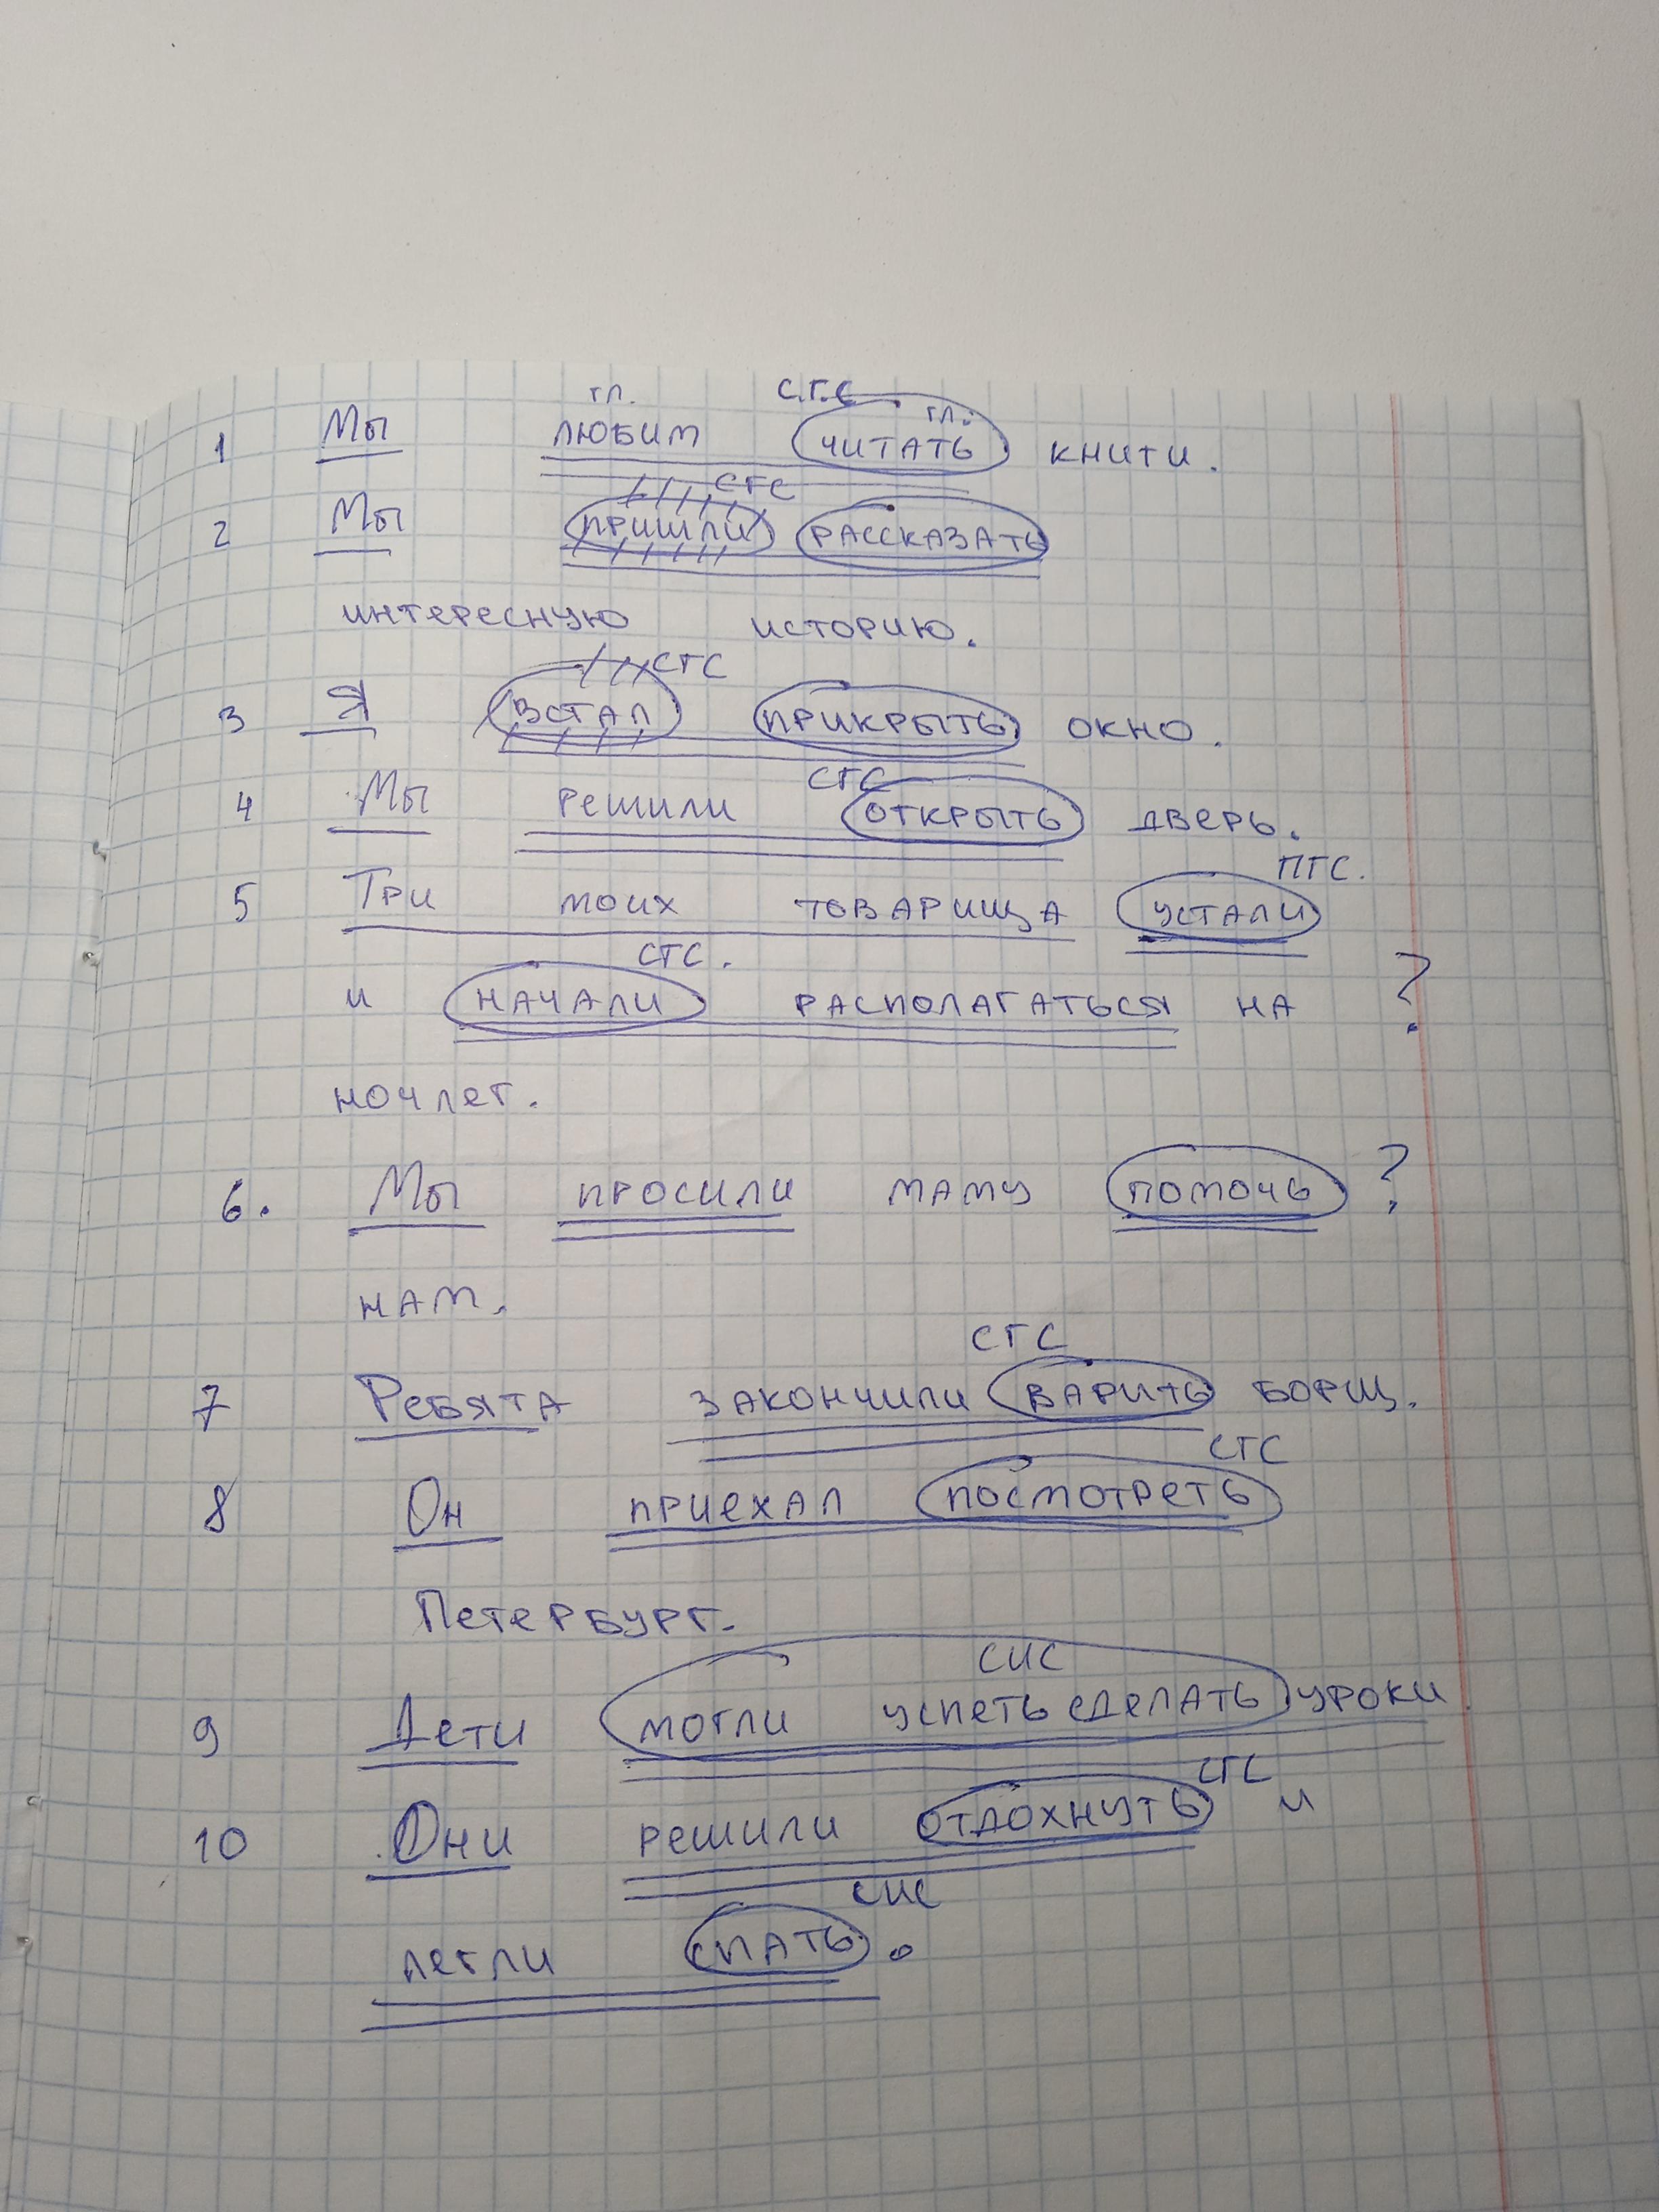 гл. С.Г.С гл.
1 Мы любим читать книги.
СГС
2 Мы пришли рассказать
интересную историю.
СГС
3 Я встал прикрыть окно.
СГС
4 Мы решили открыть дверь.
ПГС.
5 Три моих товарища устали
СГС.
и начали располагаться на ?
ночлег.
6. Мы просили маму помочь ?
нам.
СГС
7 Ребята закончили варить борщ.
СГС
8 Он приехал посмотреть
Петербург.
СИС
9 Дети могли успеть сделать уроки.
СГС
10 Они решили отдохнуть и
СИС
легли спать.